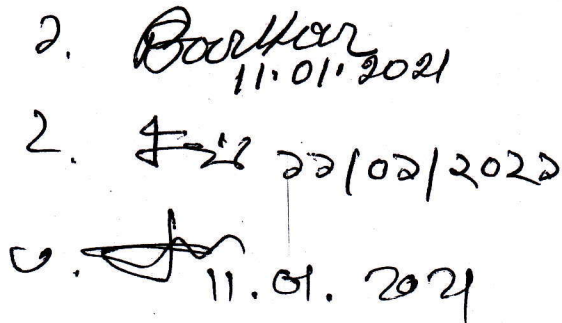 ১.
11.01.2021
২. ১১/০১/২০২১
৩. 11.01.2021